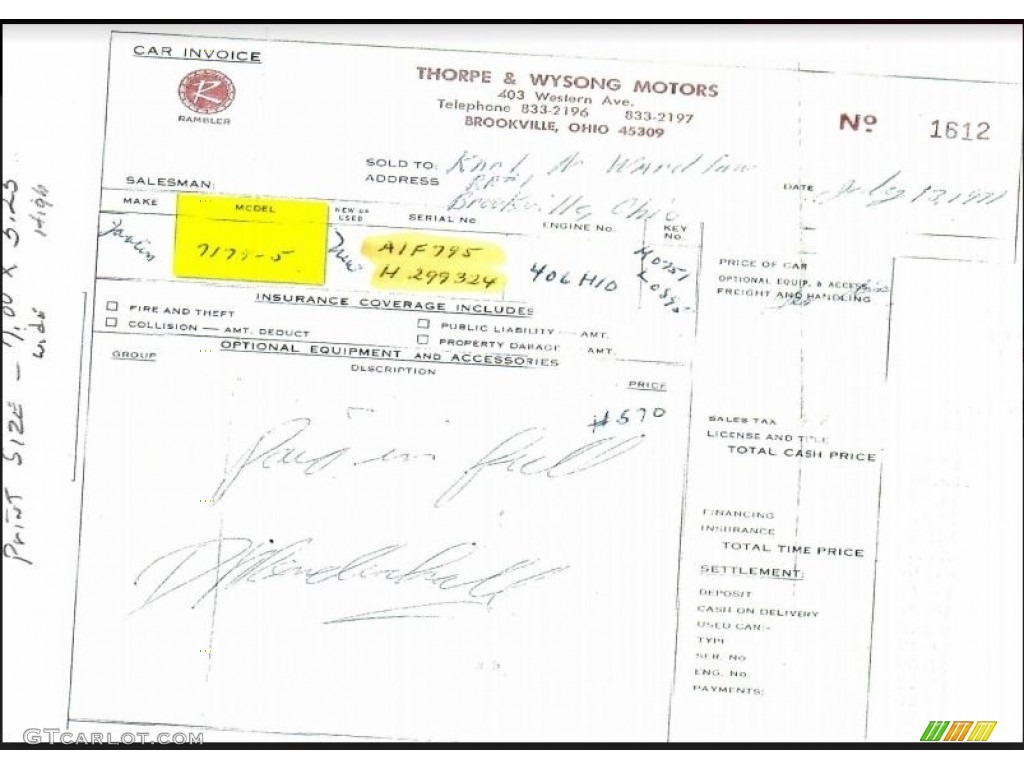 CAR INVOICE
RAMBLER
THORPE & WYSONG MOTORS
403 Western Ave.
Telephone 833-2196 833-2197
BROOKVILLE, OHIO 45309
Nº 1612
SOLD TO:
ADDRESS RR#1
Brookville, Ohio
SALESMAN:
DATE July 13, 1971
MAKE MODEL NEW OR USED SERIAL No ENGINE No. KEY No.
Javlin 7179-5 New A1F795 H 299324 406 H10
PRICE OF CAR
OPTIONAL EQUIP. & ACCESS.
FREIGHT AND HANDLING
INSURANCE COVERAGE INCLUDES
FIRE AND THEFT PUBLIC LIABILITY — AMT.
COLLISION — AMT. DEDUCT PROPERTY DAMAGE AMT.
OPTIONAL EQUIPMENT AND ACCESSORIES
GROUP DESCRIPTION PRICE
#570
Paid in full
D Mendenhall
SALES TAX
LICENSE AND TITLE
TOTAL CASH PRICE
FINANCING
INSURANCE
TOTAL TIME PRICE
SETTLEMENT:
DEPOSIT
CASH ON DELIVERY
USED CAR:-
TYPE
SER. No
ENG. No.
PAYMENTS:
Print Size — 7.00 x 5.25
wide High
GTcarlot.com